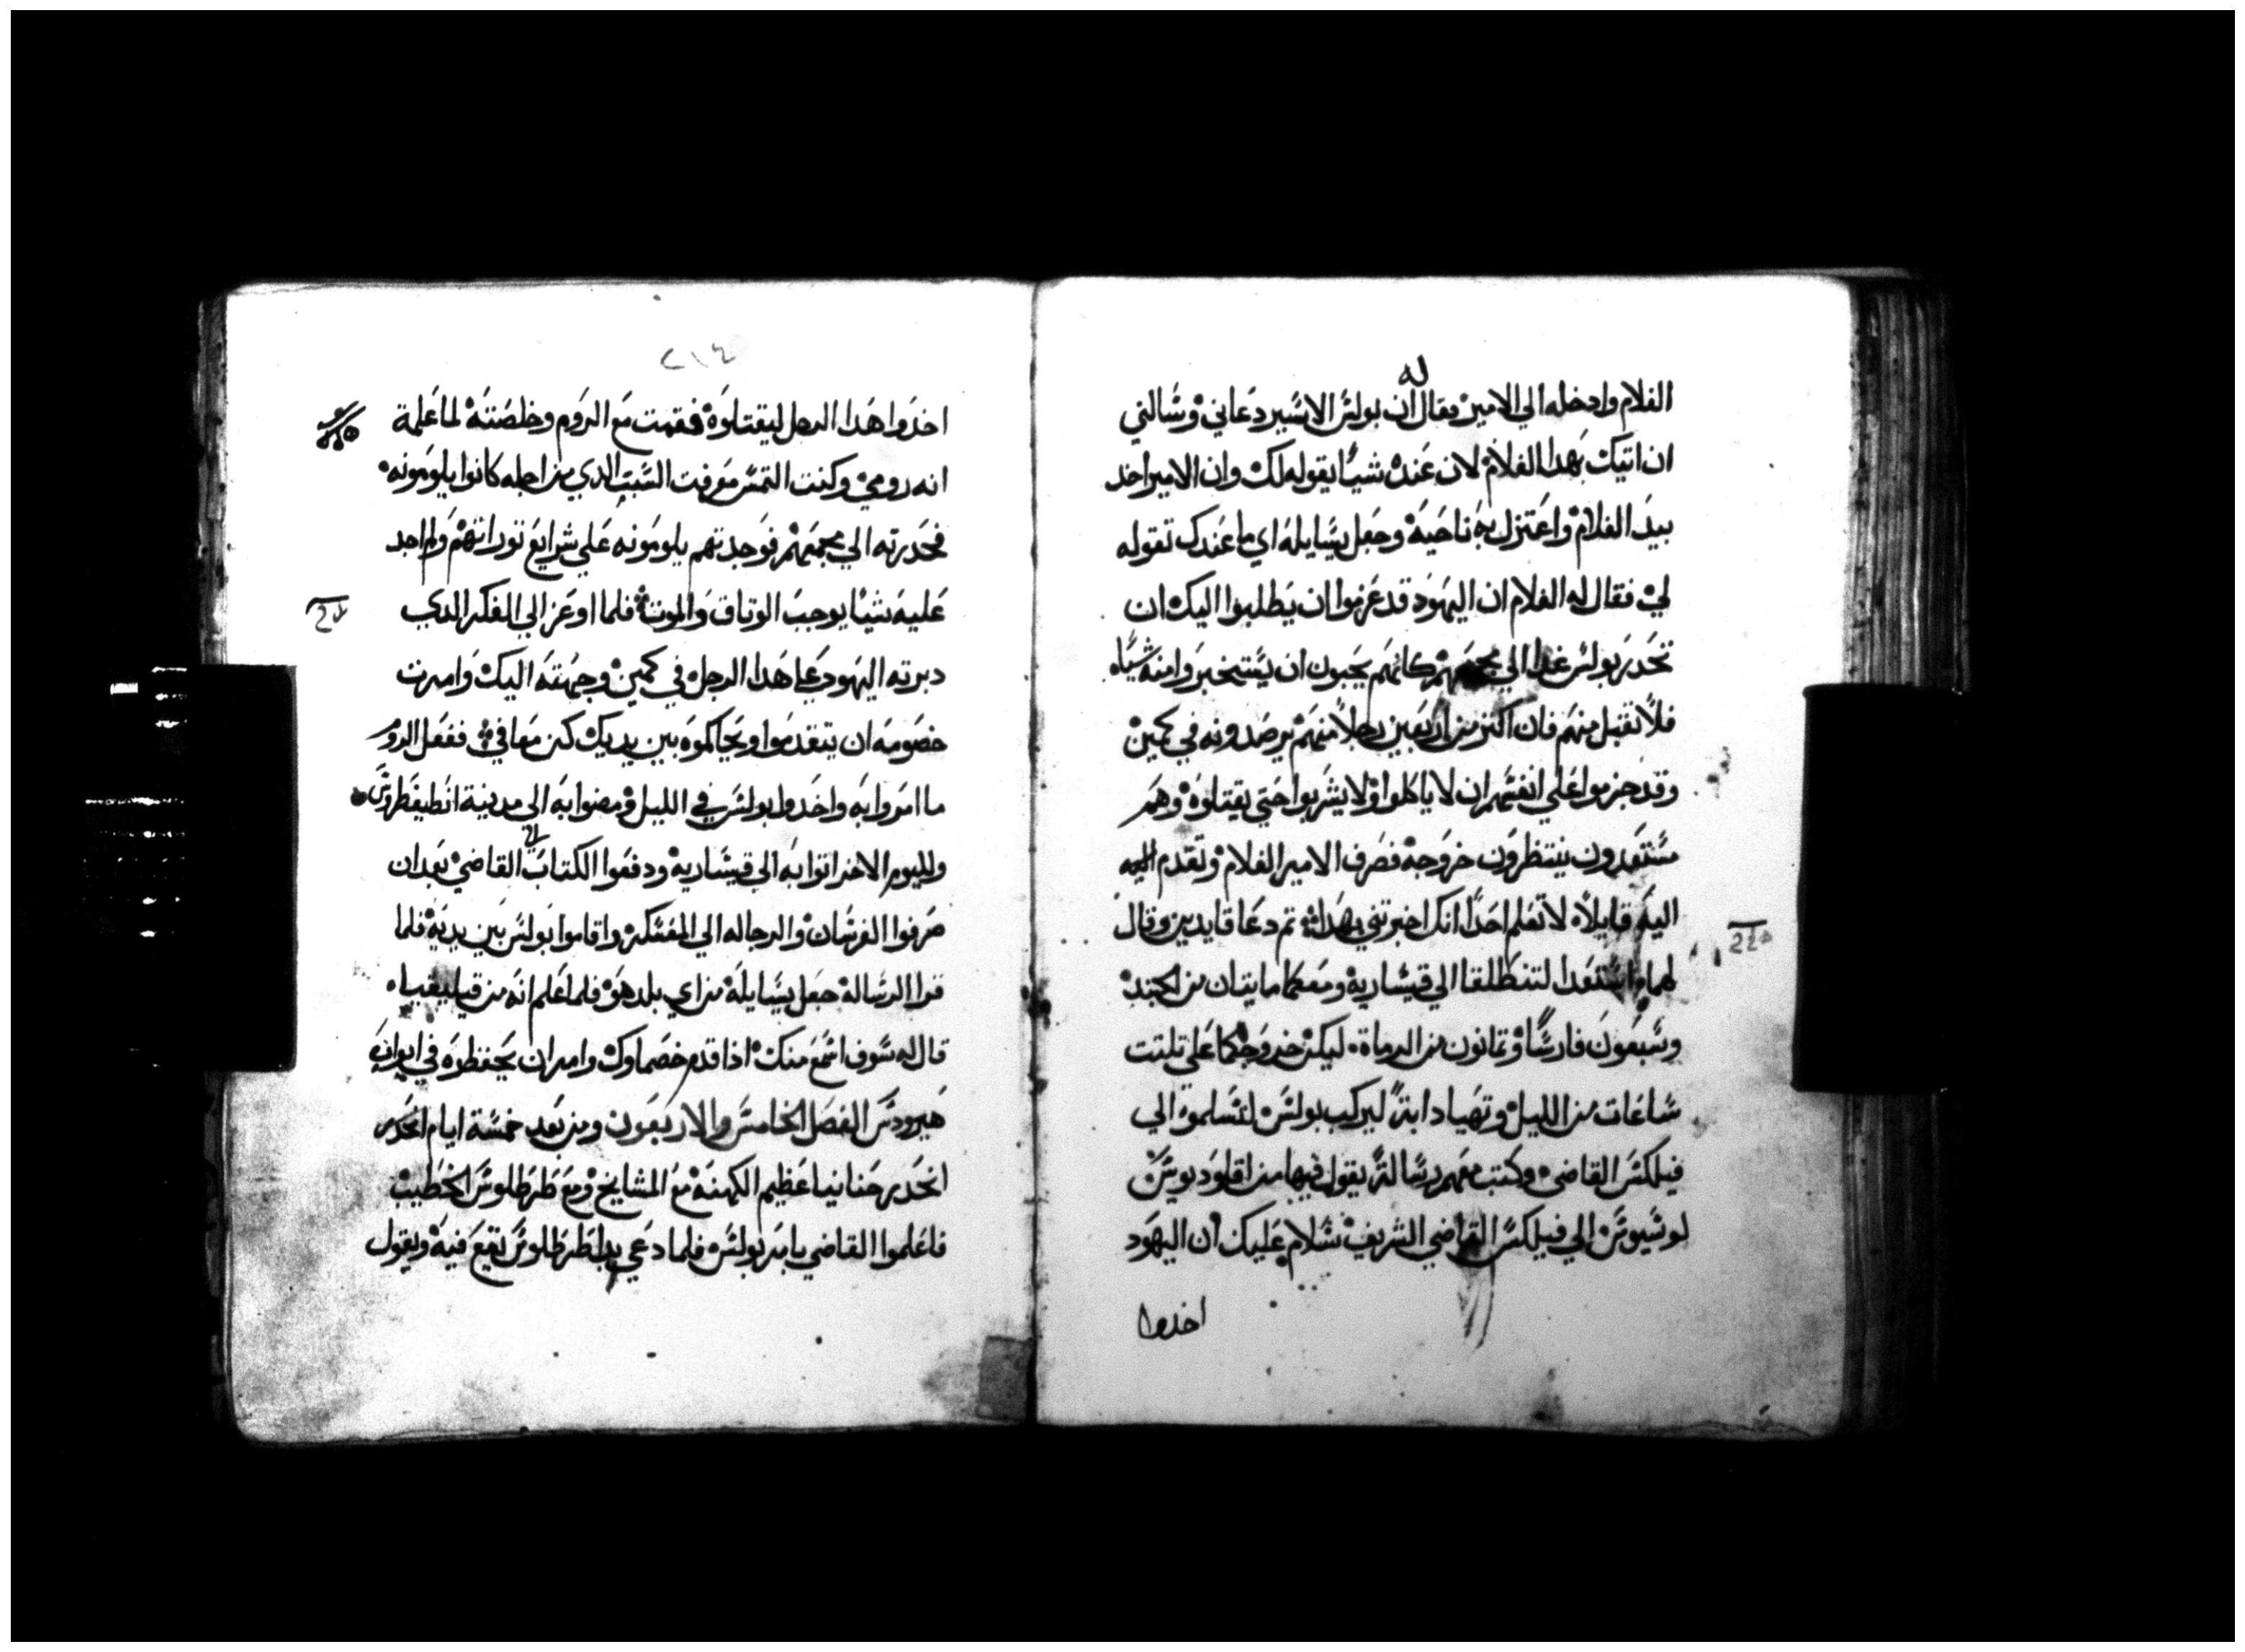 له
الغلام وادخله الي الامير فقال ان بولس الاسير دعاني وسالني
ان اتيك بهدا الغلام لان عنده شيا يقوله لك وان الامير اخد
بيد الغلام واعتزل به ناحية وجعل يسايله اي ما عندك تقوله
لي فقال له الغلام ان اليهود قد عزموا ان يطلبوا اليك ان
تحدر بولس غدا الي مجمعهم كانهم يحبون ان يستخبروا منه شياه
فلا تقبل منهم فان اكتر من اربعين رجلا منهم يرصدونه في كمين
وقد جزموا علي انفسهم ان لا ياكلوا ولا يشربوا حتي يقتلوه وهم
مستعدون ينتظرون خروجه فصرف الامير الغلام وتقدم اليه
اليه قايلاه لا تعلم احدا انك اخبرتني بهدا تم دعا قايدين وقال
لهما استعدا لتنطلقا الي قيساريه ومعكما مايتان من الجند
وسبعون فارسا وتمانون من الرماة ليكن خروجكما علي تلتت
ساعات من الليل وتهيا دابة ليركب بولس لتسلموه الي
فيلكس القاضي وكتب معهم رسالة يقول فيها من اقلوديوس
لوسيوس الي فيلكس القاضي الشريف سلام عليك ان اليهود
اخدوا
٢١٤
اخدوا هدا الرجل ليقتلوه فقمت مع الروم وخلصته لما علمة
انه رومي وكنت التمس معرفت السبب الدي من اجله كانوا يلومونه
فحدرته الي مجمعهم فوجدتهم يلومونه علي شرايع توراتهم ولم اجد
عليه شيا يوجب الوتاق والموت فلما اوعز الي الفكر الدي
دبرته اليهود علي هدا الرجل في كمين وجهته اليك وامرت
خصومه ان يتقدموا ويحاكموه بين يديك كن معافي ففعل الروم
ما امروا به واخدوا بولس في الليل ومضوا به الي مدينة انطيفطروس
ولليوم الاخر اتوا به الي قيساريه ودفعوا الكتاب القاضي بعد ان
صرفوا الفرسان والرجاله الي المعسكر واقاموا بولس بين يديه فلما
قرا الرساله جعل يسايله من اي بلد هو فلما علم انه من قيليقيا
قال له سوف اسمع منك ادا قدم خصماوك وامر ان يحفظوه في ايوان
هيرودس الفصل الخامس والاربعون ومن بعد خمسة ايام انحدر
انحدر حنانيا عظيم الكهنة مع المشايخ ومع طرطلوس الخطيب
فاعلموا القاضي بامر بولس فلما دعي بدا طرطلوس يقع فيه ويقول